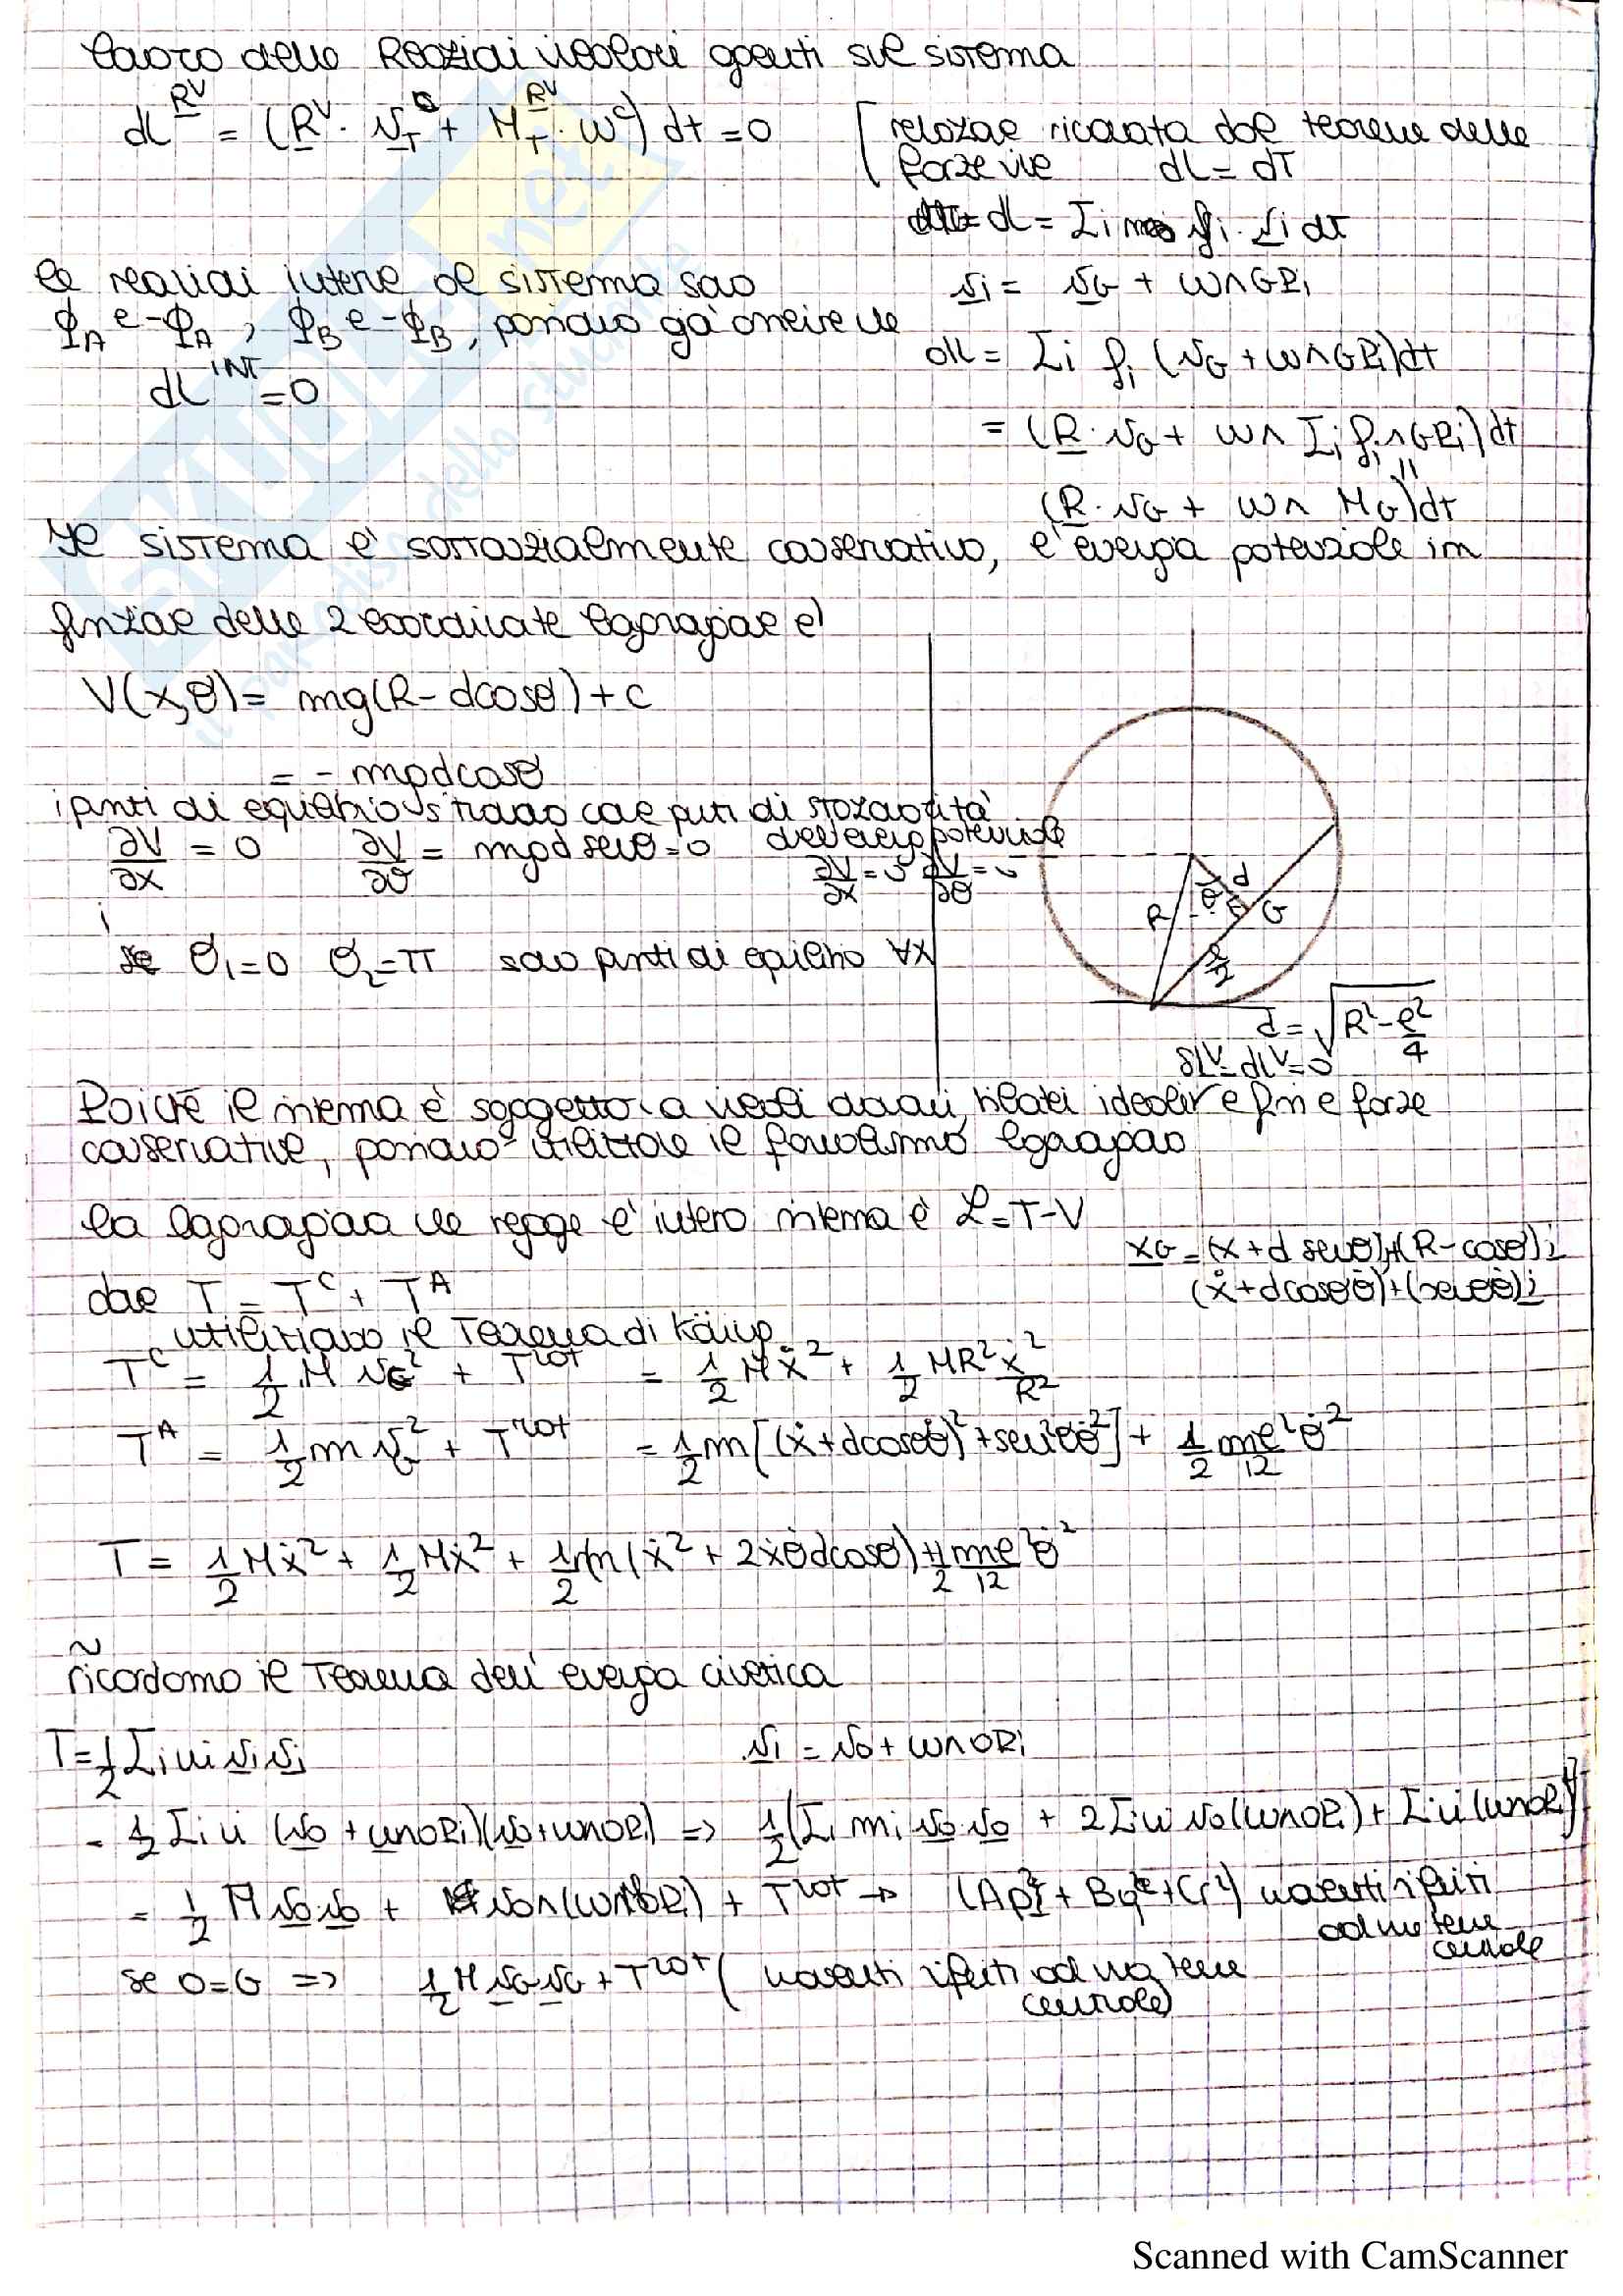 lavoro delle Reazioni vincolari agenti sul sistema
dL^{RV} = (R^V · v_T^C + M_T^{RV} · ω^C) dt = 0
[ relazione ricavata dal teorema delle
forze vive dL = dT
dL = Σi fi · vi dt
le reazioni interne al sistema sono
vi = vG + ω∧GPi
ϕA e -ϕA, ϕB e -ϕB, possiamo già che
dL = Σi fi (vG + ω∧GPi)dt
dL^{INT} = 0
= (R · vG + ω∧ Σi fi ∧ GPi)dt
(R · vG + ω∧ MG)dt
Il sistema è sostanzialmente conservativo, l'energia potenziale in
funzione delle 2 coordinate lagrangiane è
V(x,θ) = mg(R - dcosθ) + c
= - mgdcosθ
i punti di equilibrio si trovano come punti di stazionarietà
dell'energia potenziale
∂V/∂x = 0 ∂V/∂θ = mgd senθ = 0
∂V/∂x = 0 ∂V/∂θ = 0
θ d
R G
l/2
θ1 = 0 θ2 = π sono punti di equilibrio ∀x
d = √(R² - l²/4)
δL^V = dL^V = 0
Poichè il sistema è soggetto a vincoli olonomi, bilateri ideali e fissi e forze
conservative, possiamo utilizzare il formalismo lagrangiano
la lagrangiana che regge l'intero sistema è ℒ = T - V
xG = (x + d senθ)i + (R - cosθ)j
dove T = T^C + T^A
(ẋ + dcosθθ̇) + (senθθ̇)j
utilizziamo il Teorema di König
T^C = 1/2 M vG² + T^{rot} = 1/2 Mẋ² + 1/2 MR² ẋ²/R²
T^A = 1/2 m vG² + T^{rot} = 1/2 m[(ẋ + dcosθθ̇)² + sen²θθ̇²] + 1/2 ml²/12 θ̇²
T = 1/2 Mẋ² + 1/2 Mẋ² + 1/2 m(ẋ² + 2ẋθ̇dcosθ) + 1/2 ml²/12 θ̇²
~
ricordiamo il Teorema dell'energia cinetica
T = 1/2 Σi mi vi vi
vi = vo + ω∧OPi
= 1/2 Σi mi (vo + ω∧OPi)(vo + ω∧OPi) => 1/2 (Σi mi vo · vo + 2Σi mi vo(ω∧OPi) + Σi mi (ω∧OPi)²)
= 1/2 M vo vo + vo∧(ω∧OPi) + T^{rot} → (Ap² + Bq² + Cr²) momenti riferiti
ad una terna
centrale
se O=G => 1/2 M vG vG + T^{rot} ( momenti riferiti ad una terna
centrale)
Scanned with CamScanner
SKUOLA.net
il paradiso dello studente